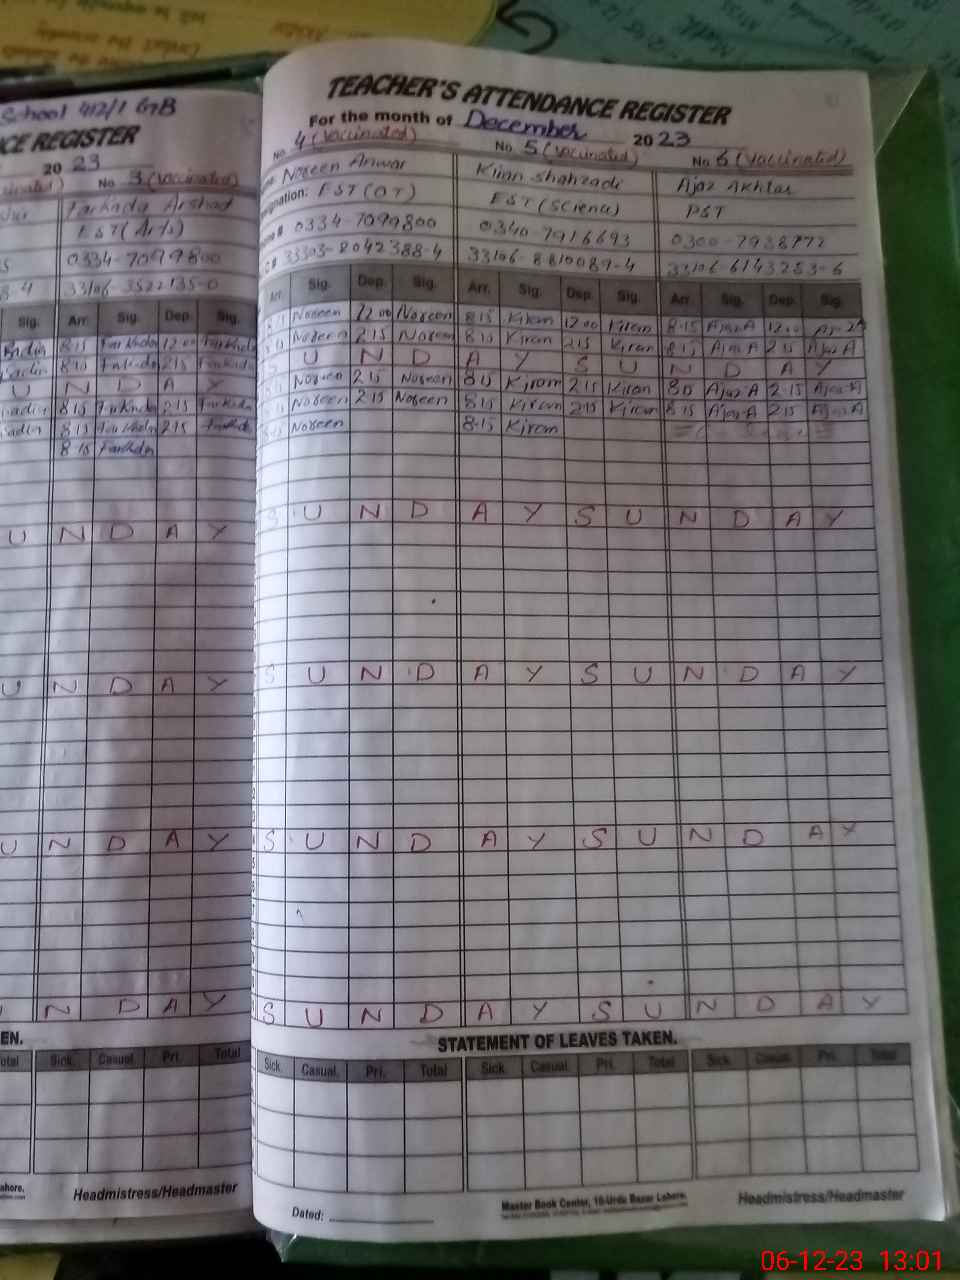 School 412/1 GB
CE REGISTER
20 23
No. 3 (vaccinated)
Farkhda Arshad
EST (Arts)
0334-7099800
33106-3522135-0
Sig. Arr. Sig. Dep. Sig.
8:15 Farkhda 12:00 Farkhda
8:15 Farkhda 2:15 Farkhda
U N D A Y
8:15 Farkhda 2:15 Farkhda
8:15 Farkhda 2:15 Farkhda
8:15 Farkhda
U N D A Y
U N D A Y
U N D A Y
N D A Y
EN.
Total Sick. Casual. Pri. Total
Headmistress/Headmaster
TEACHER'S ATTENDANCE REGISTER
For the month of December 2023
No. 4 (vaccinated) No. 5 (vaccinated) No. 6 (vaccinated)
Noreen Anwar Kiran Shahzadi Ajaz Akhtar
EST (OT) EST (Science) PST
0334-7099800 0340-7916693 0300-7938772
33303-8042388-4 33106-8810089-4 33106-6143253-6
Arr. Sig. Dep. Sig. Arr. Sig. Dep. Sig. Arr. Sig. Dep. Sig.
8:15 Noreen 12:00 Noreen 8:15 Kiran 12:00 Kiran 8:15 Ajaz A 12:00 Ajaz A
8:15 Noreen 2:15 Noreen 8:15 Kiran 2:15 Kiran 8:15 Ajaz A 2:15 Ajaz A
S U N D A Y S U N D A Y
8:15 Noreen 2:15 Noreen 8:15 Kiran 2:15 Kiran 8:15 Ajaz A 2:15 Ajaz A
8:15 Noreen 2:15 Noreen 8:15 Kiran 2:15 Kiran 8:15 Ajaz A 2:15 Ajaz A
8:15 Noreen 8:15 Kiran
S U N D A Y S U N D A Y
S U N D A Y S U N D A Y
S U N D A Y S U N D A Y
S U N D A Y S U N D A Y
STATEMENT OF LEAVES TAKEN.
Sick. Casual. Pri. Total Sick. Casual. Pri. Total Sick. Casual. Pri. Total
Dated: Master Book Center, 16-Urdu Bazar Lahore. Headmistress/Headmaster
06-12-23 13:01